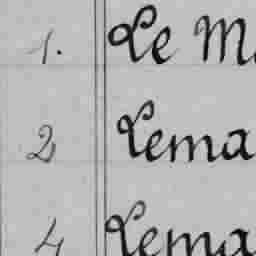 1. Le M
2 Lema
4 Lema